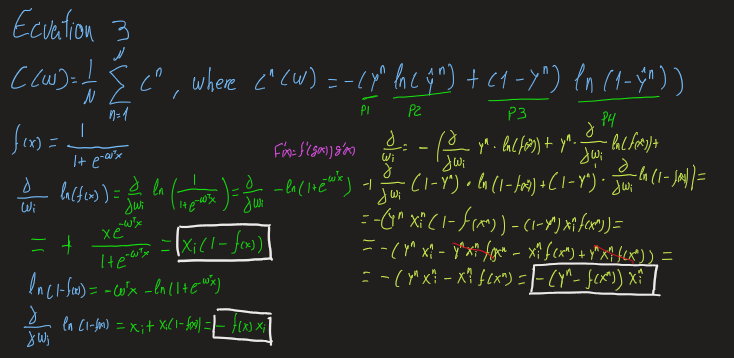 Ecuation 3
C(w) = 1/N Σ_{n=1}^{N} C^n , where C^n(w) = -(y^n ln(ŷ^n) + (1-y^n) ln(1-ŷ^n))
P1 P2 P3 P4
f(x) = 1/(1+e^{-ω^T x})
F'(x)=f'(g(x))g'(x)
∂/ω_i ln(f(x)) = ∂/∂ω_i ln(1/(1+e^{-ω^T x})) = ∂/∂ω_i -ln(1+e^{-ω^T x})
= + xe^{-ω^T x}/(1+e^{-ω^T x}) = x_i(1-f(x))
ln(1-f(x)) = -ω^T x -ln(1+e^{-ω^T x})
∂/∂ω_i ln(1-f(x)) = x_i + x_i(1-f(x)) = -f(x)x_i
∂/ω_i = -(∂/∂ω_i y^n · ln(f(x^n)) + y^n · ∂/∂ω_i ln(f(x^n)) +
+ ∂/∂ω_i (1-y^n) · ln(1-f(x)) + (1-y^n) · ∂/∂ω_i ln(1-f(x)) =
= -(y^n x_i^n (1-f(x^n)) - (1-y^n) x_i^n f(x^n)) =
= -(y^n x_i^n - y^n x_i^n f(x^n - x_i^n f(x^n) + y^n x_i^n f(x^n)) =
= -(y^n x_i^n - x_i^n f(x^n) = -(y^n - f(x^n)) x_i^n